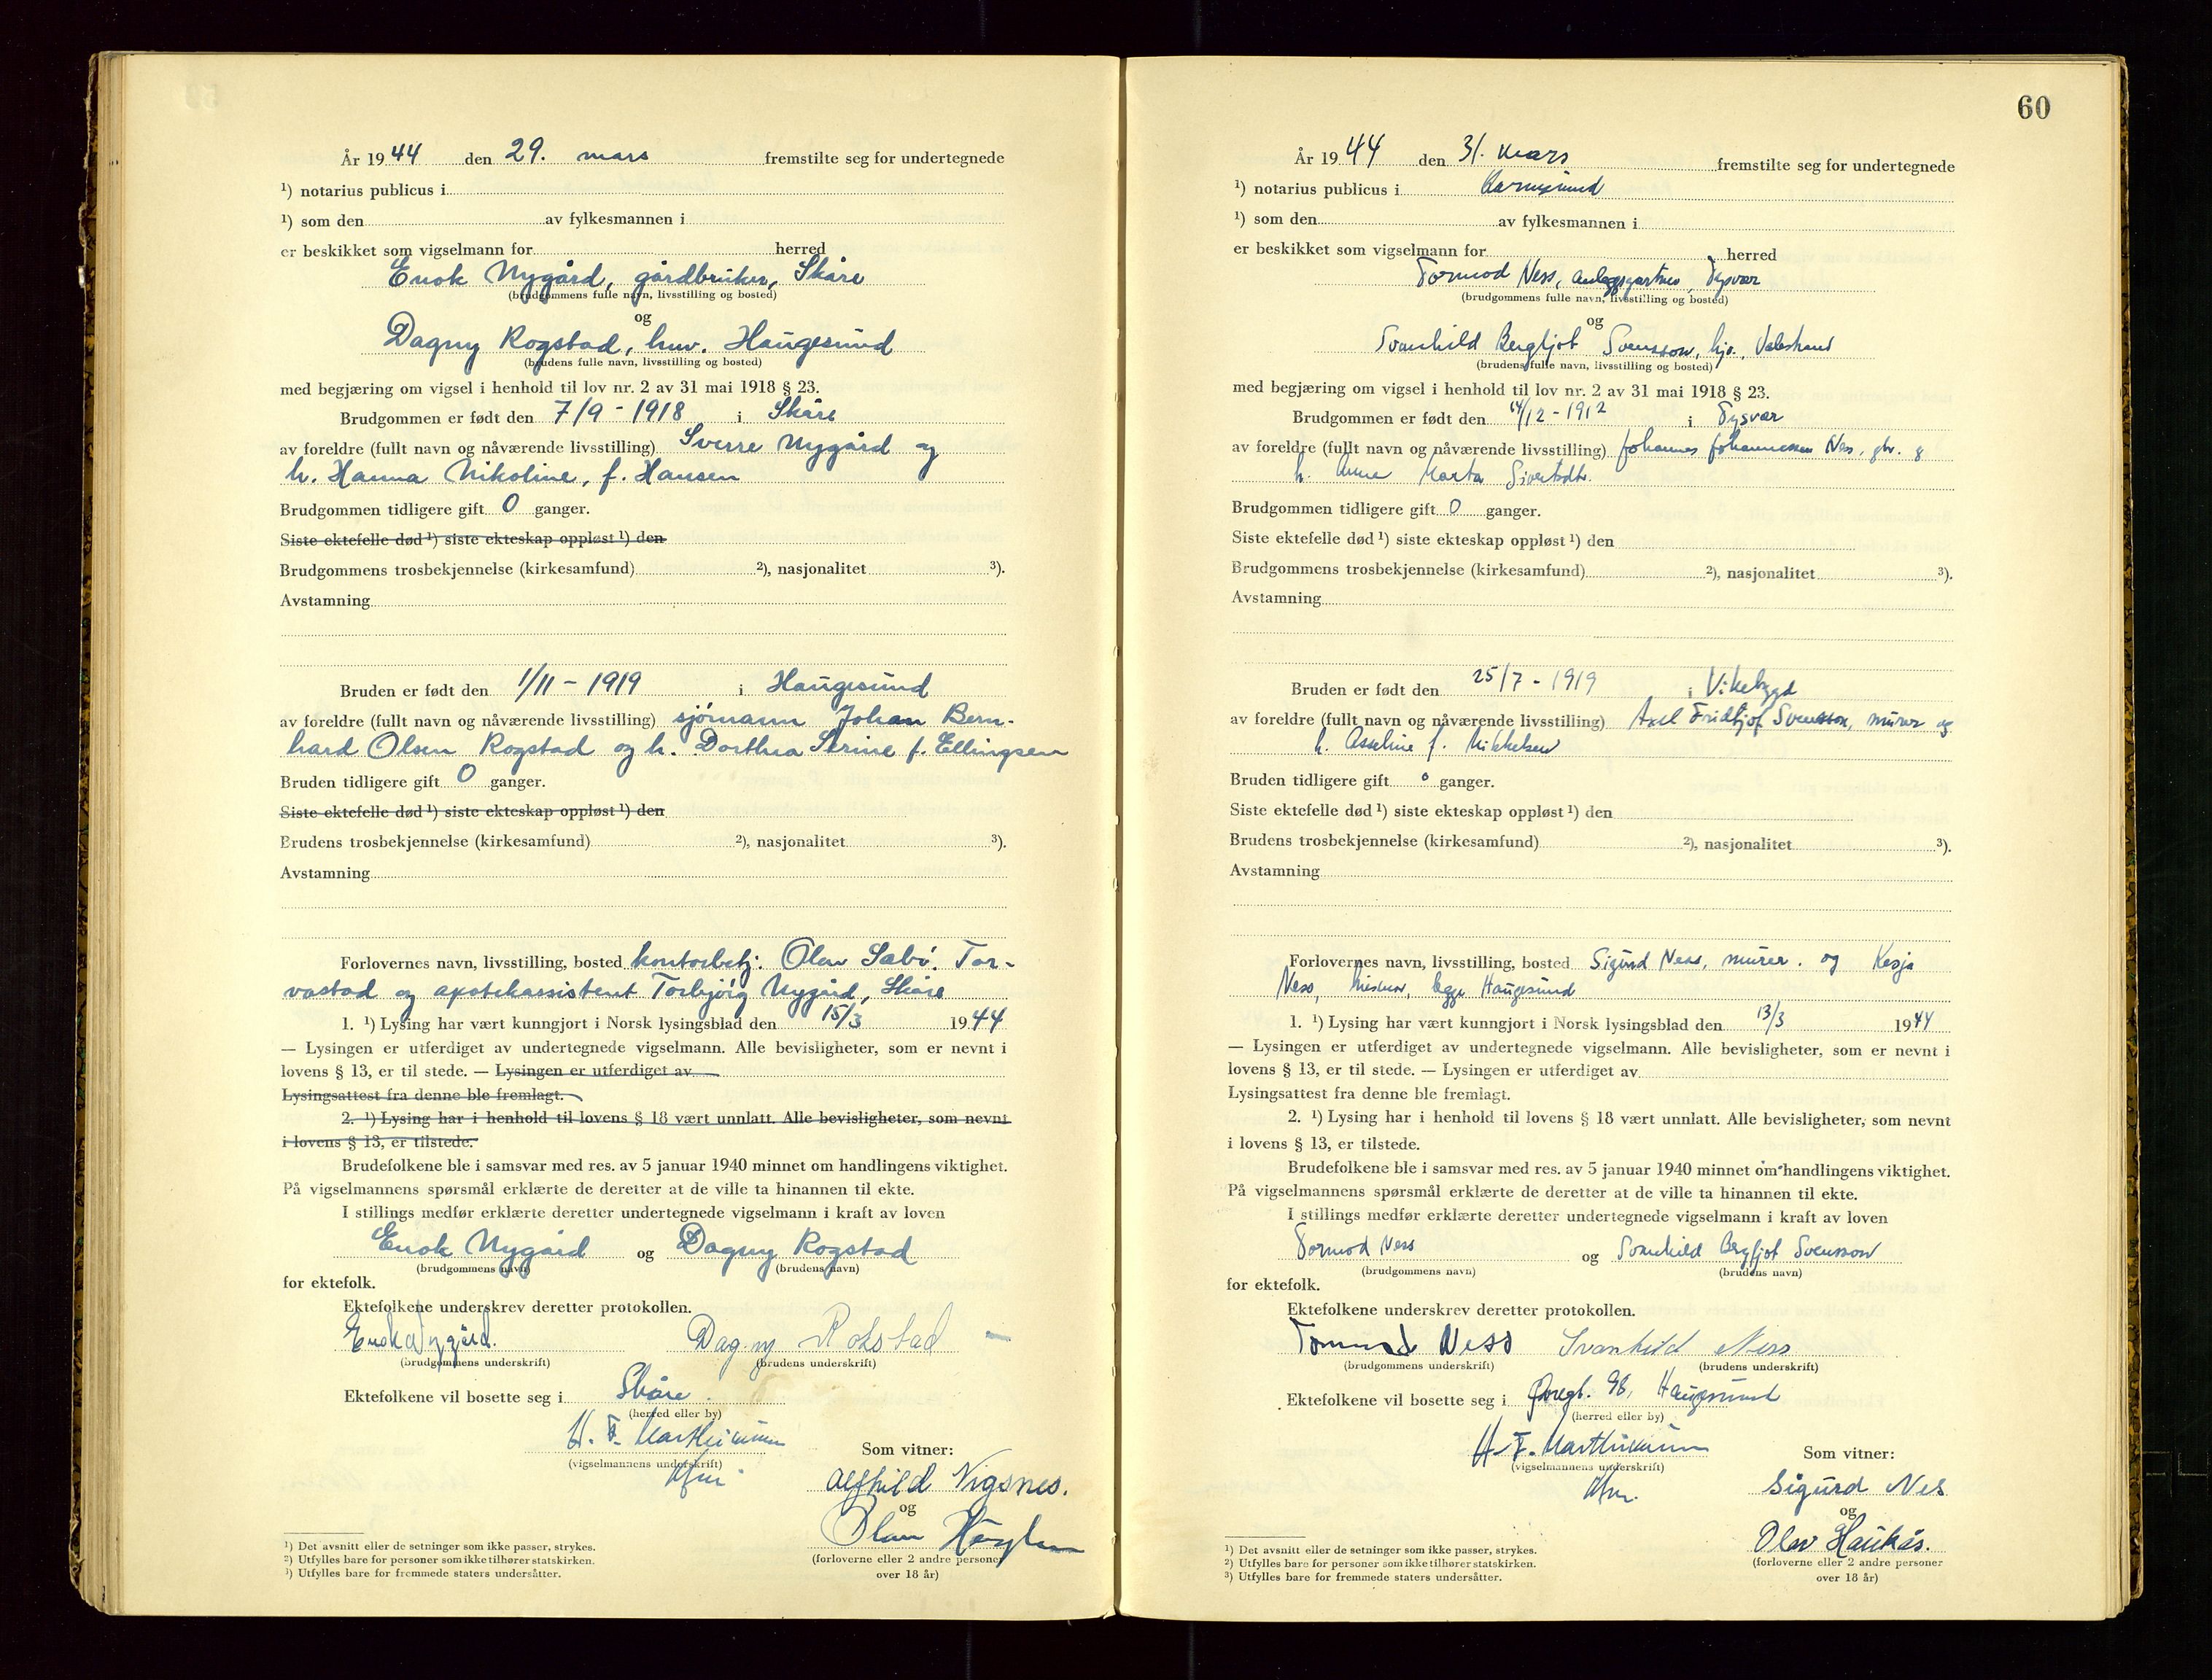 År 1944 den 29. mars fremstilte seg for undertegnede
¹) notarius publicus i
¹) som den av fylkesmannen i
er beskikket som vigselmann for herred
Enok Nygård, gårdbruker, Skåre
(brudgommens fulle navn, livsstilling og bosted)
og
Dagny Rogstad, husv. Haugesund
(brudens fulle navn, livsstilling og bosted)
med begjæring om vigsel i henhold til lov nr. 2 av 31 mai 1918 § 23.
Brudgommen er født den 7/9 - 1918 i Skåre
av foreldre (fullt navn og nåværende livsstilling) Sverre Nygård og
h. Hanna Nikoline, f. Hansen
Brudgommen tidligere gift 0 ganger.
Siste ektefelle død ¹) siste ekteskap oppløst ¹) den
Brudgommens trosbekjennelse (kirkesamfund) ²), nasjonalitet ³).
Avstamning
Bruden er født den 1/11 - 1919 i Haugesund
av foreldre (fullt navn og nåværende livsstilling) sjømann Johan Bern-
hard Olsen Rogstad og h. Dorthea Serine f. Ellingsen
Bruden tidligere gift 0 ganger.
Siste ektefelle død ¹) siste ekteskap oppløst ¹) den
Brudens trosbekjennelse (kirkesamfund) ²), nasjonalitet ³).
Avstamning
Forlovernes navn, livsstilling, bosted kontorbetj. Olav Sabø. Tor-
vastad og apotekassistent Torbjørg Nygård, Skåre
1. ¹) Lysing har vært kunngjort i Norsk lysingsblad den 15/3 1944
— Lysingen er utferdiget av undertegnede vigselmann. Alle bevisligheter, som er nevnt i
lovens § 13, er til stede. — Lysingen er utferdiget av
Lysingsattest fra denne ble fremlagt.
2. ¹) Lysing har i henhold til lovens § 18 vært unnlatt. Alle bevisligheter, som nevnt
i lovens § 13, er tilstede.
Brudefolkene ble i samsvar med res. av 5 januar 1940 minnet om handlingens viktighet.
På vigselmannens spørsmål erklærte de deretter at de ville ta hinannen til ekte.
I stillings medfør erklærte deretter undertegnede vigselmann i kraft av loven
Enok Nygård og Dagny Rogstad
(brudgommens navn) (brudens navn)
for ektefolk.
Ektefolkene underskrev deretter protokollen.
Enok Nygård. Dagny Rokstad
(brudgommens underskrift) (brudens underskrift)
Ektefolkene vil bosette seg i Skåre
(herred eller by)
(vigselmannens underskrift)
Som vitner:
Alfhild Vigsnes.
og
Olav
(forloverne eller 2 andre personer
over 18 år)
¹) Det avsnitt eller de setninger som ikke passer, strykes.
²) Utfylles bare for personer som ikke tilhører statskirken.
³) Utfylles bare for fremmede staters undersåtter.
60
År 1944 den 31. mars fremstilte seg for undertegnede
¹) notarius publicus i Karmsund
¹) som den av fylkesmannen i
er beskikket som vigselmann for herred
Tormod Ness, anleggsgartner, Tysvær
(brudgommens fulle navn, livsstilling og bosted)
og
Svanhild Bergljot Svensson, hjv., Valestrand
(brudens fulle navn, livsstilling og bosted)
med begjæring om vigsel i henhold til lov nr. 2 av 31 mai 1918 § 23.
Brudgommen er født den 14/12 - 1912 i Tysvær
av foreldre (fullt navn og nåværende livsstilling) Johannes Johannessen Ness, gbr. g
h. Anne Marta Sivertsdtr.
Brudgommen tidligere gift 0 ganger.
Siste ektefelle død ¹) siste ekteskap oppløst ¹) den
Brudgommens trosbekjennelse (kirkesamfund) ²), nasjonalitet ³).
Avstamning
Bruden er født den 25/7 - 1919 i Vikebygd
av foreldre (fullt navn og nåværende livsstilling) Axel Fridtjof Svensson, murer og
h. Asseline f. Mikkelsen
Bruden tidligere gift 0 ganger.
Siste ektefelle død ¹) siste ekteskap oppløst ¹) den
Brudens trosbekjennelse (kirkesamfund) ²), nasjonalitet ³).
Avstamning
Forlovernes navn, livsstilling, bosted Sigurd Ness, murer. og Kesja
Ness, begge Haugesund
1. ¹) Lysing har vært kunngjort i Norsk lysingsblad den 13/3 1944
— Lysingen er utferdiget av undertegnede vigselmann. Alle bevisligheter, som er nevnt i
lovens § 13, er til stede. — Lysingen er utferdiget av
Lysingsattest fra denne ble fremlagt.
2. ¹) Lysing har i henhold til lovens § 18 vært unnlatt. Alle bevisligheter, som nevnt
i lovens § 13, er tilstede.
Brudefolkene ble i samsvar med res. av 5 januar 1940 minnet om handlingens viktighet.
På vigselmannens spørsmål erklærte de deretter at de ville ta hinannen til ekte.
I stillings medfør erklærte deretter undertegnede vigselmann i kraft av loven
Tormod Ness og Svanhild Bergljot Svensson
(brudgommens navn) (brudens navn)
for ektefolk.
Ektefolkene underskrev deretter protokollen.
Tormod Ness Svanhild Ness
(brudgommens underskrift) (brudens underskrift)
Ektefolkene vil bosette seg i Øvregt. 98, Haugesund
(herred eller by)
(vigselmannens underskrift)
Som vitner:
Sigurd Nes
og
Olav Haukås.
(forloverne eller 2 andre personer
over 18 år)
¹) Det avsnitt eller de setninger som ikke passer, strykes.
²) Utfylles bare for personer som ikke tilhører statskirken.
³) Utfylles bare for fremmede staters undersåtter.